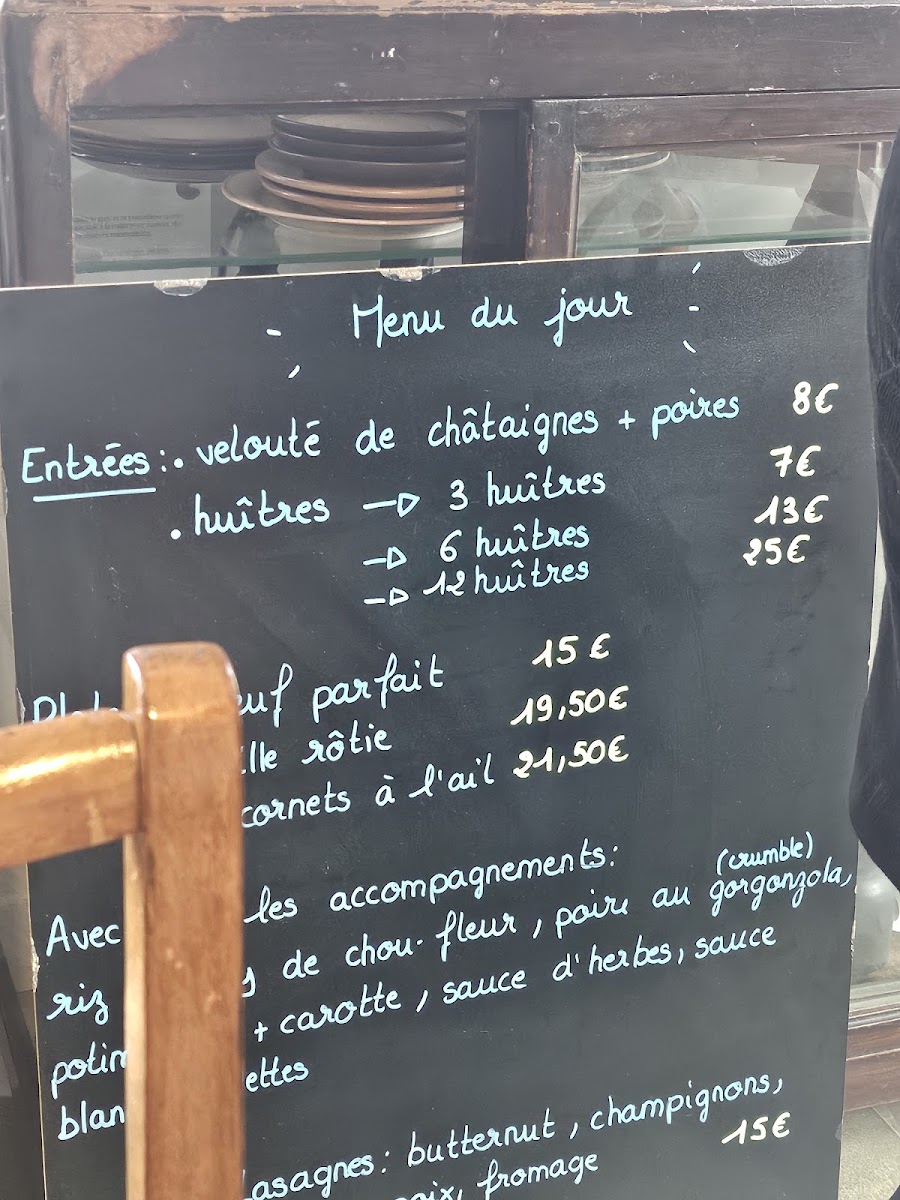 Menu du jour
Entrées : . velouté de châtaignes + poires 8€
. huîtres → 3 huîtres 7€
→ 6 huîtres 13€
→ 12 huîtres 25€
parfait 15 €
rôtie 19,50€
cornets à l'ail 21,50€
Avec les accompagnements:
riz de chou-fleur, poire au gorgonzola, (crumble)
+ carotte, sauce d'herbes, sauce
lasagnes: butternut, champignons,
fromage 15€